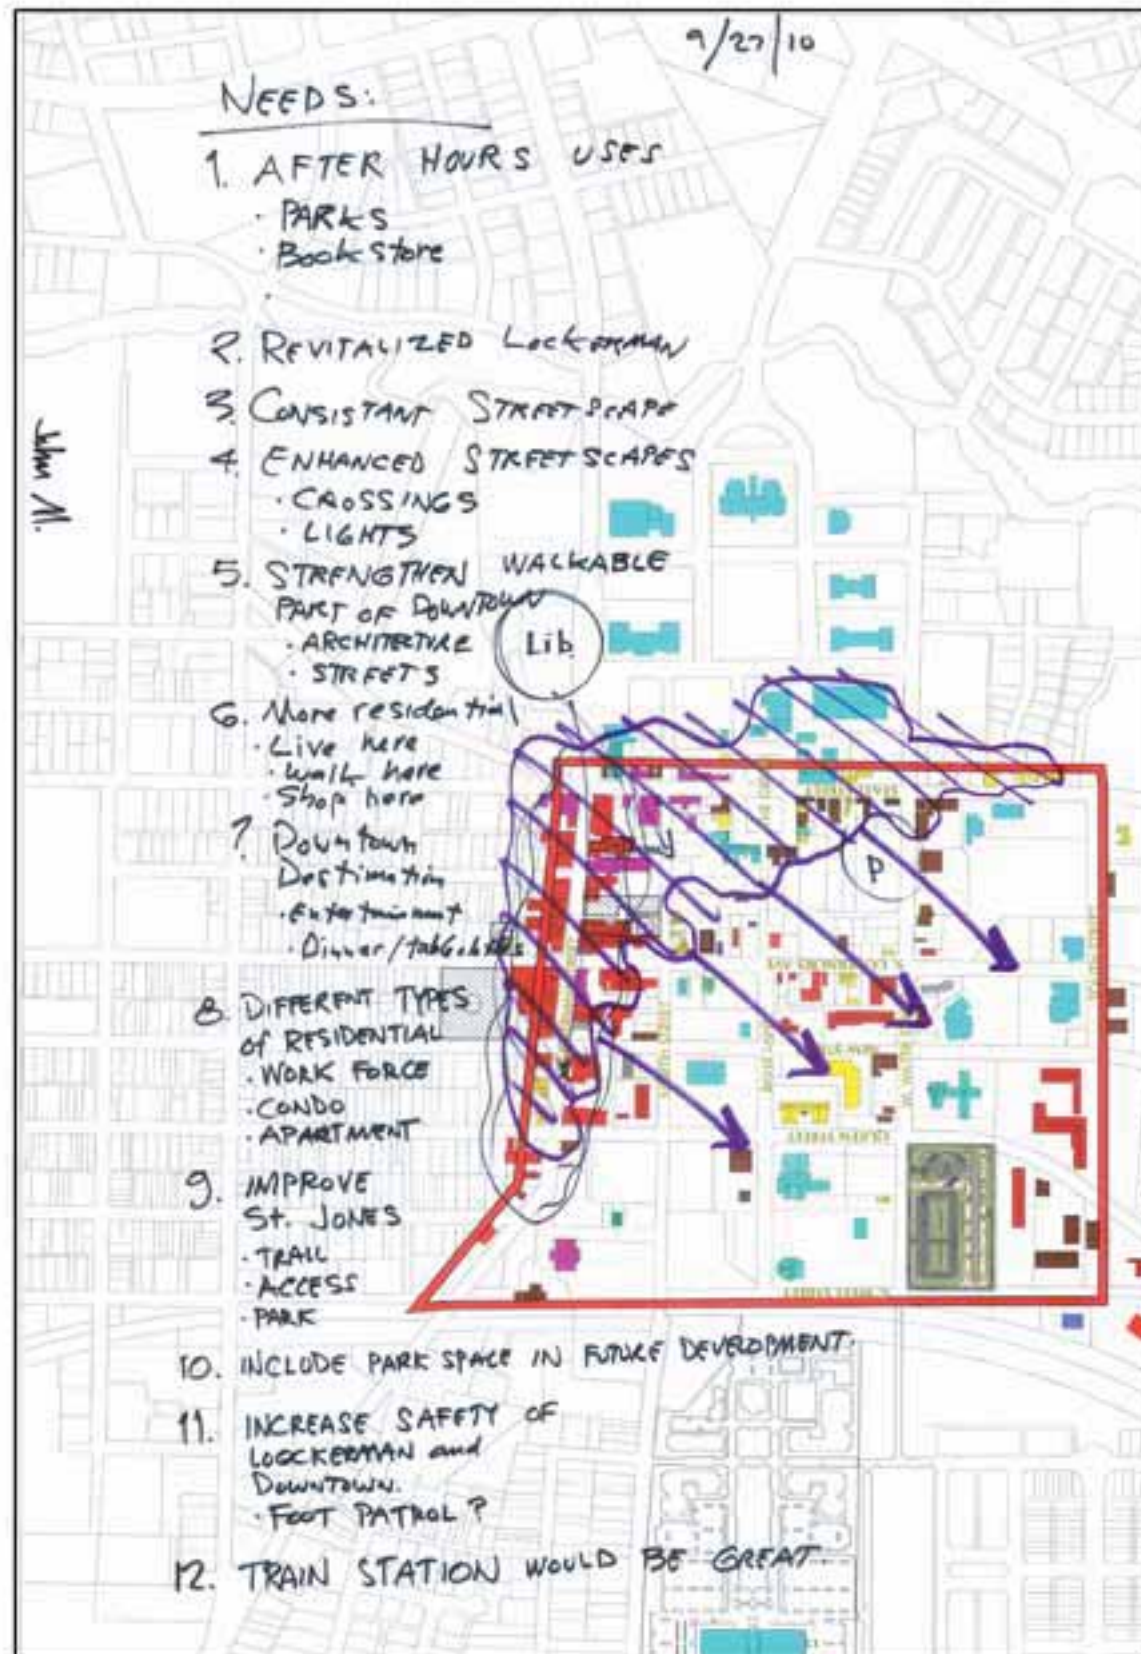 9/27/10
NEEDS:
1. AFTER HOURS USES
· PARKS
· Book store
·
2. REVITALIZED Lockerman
3. CONSISTANT STREETSCAPE
4. ENHANCED STREETSCAPES
· CROSSINGS
· LIGHTS
John M.
5. STRENGTHEN WALKABLE
PART OF DOWNTOWN
· ARCHITECTURE
· STREETS
Lib.
6. More residential
· Live here
· walk here
· Shop here
7. Downtown
Destination
· Entertainment
· Dinner/
P
8. DIFFERENT TYPES
of RESIDENTIAL
· WORK FORCE
· CONDO
· APARTMENT
QUEEN STREET
9. IMPROVE
St. JONES
· TRAIL
· ACCESS
· PARK
10. INCLUDE PARK SPACE IN FUTURE DEVELOPMENT.
11. INCREASE SAFETY OF
LOOCKERMAN and
DOWNTOWN.
· FOOT PATROL?
12. TRAIN STATION WOULD BE GREAT.